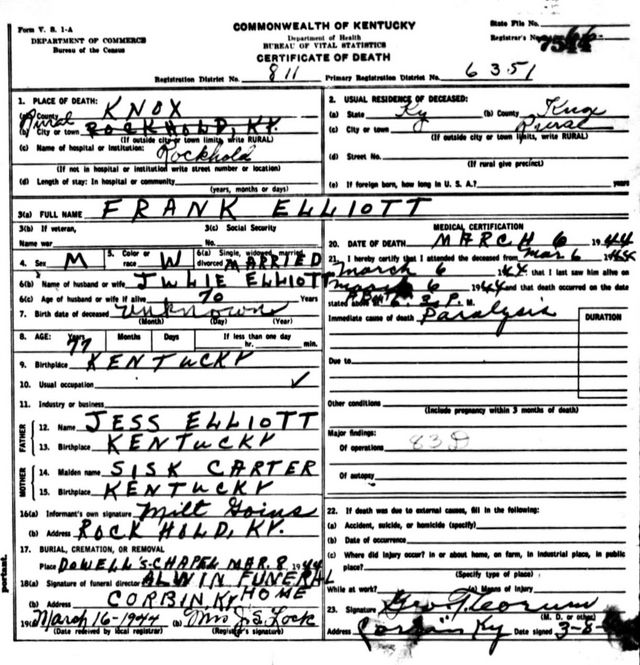 Form V. S. 1-A
DEPARTMENT OF COMMERCE
Bureau of the Census
COMMONWEALTH OF KENTUCKY
Department of Health
BUREAU OF VITAL STATISTICS
CERTIFICATE OF DEATH
State File No.
Registrar's No.
Registration District No. 811 Primary Registration District No. 6351
1. PLACE OF DEATH:
(a) County KNOX
Rural
(b) City or town ROCKHOLD, KY.
(If outside city or town limits, write RURAL)
(c) Name of hospital or institution: Rockhold
(If not in hospital or institution write street number or location)
(d) Length of stay: In hospital or community
(years, months or days)
2. USUAL RESIDENCE OF DECEASED:
(a) State Ky (b) County Knox
(c) City or town Rural
(If outside city or town limits, write RURAL)
(d) Street No.
(If rural give precinct)
(e) If foreign born, how long in U. S. A.? years
3(a) FULL NAME FRANK ELLIOTT
3(b) If veteran,
Name war
3(c) Social Security
No.
4. Sex M
5. Color or race W
6(a) Single, widowed, married, divorced MARRIED
6(b) Name of husband or wife JULIE ELLIOTT
6(c) Age of husband or wife if alive 70 Years
7. Birth date of deceased unknown
(Month) (Day) (Year)
8. AGE: Years 77 Months Days If less than one day
hr. min.
9. Birthplace KENTUCKY
10. Usual occupation ✓
11. Industry or business
FATHER
12. Name JESS ELLIOTT
13. Birthplace KENTUCKY
MOTHER
14. Maiden name SISK CARTER
15. Birthplace KENTUCKY
16(a) Informant's own signature Milt Goins
(b) Address ROCK HOLD, KY.
17. BURIAL, CREMATION, OR REMOVAL
Place DOWELL'S-CHAPEL MAR. 8 1944
18(a) Signature of funeral director ALWIN FUNERAL
HOME
(b) Address CORBIN KY
19(a) March 16-1944 (b) Mrs J.S. Lock
(Date received by local registrar) (Registrar's signature)
MEDICAL CERTIFICATION
20. DATE OF DEATH MARCH 6 1944
21. I hereby certify that I attended the deceased from Mar 6 1944
March 6 1944 that I last saw him alive on
March 6 1944 and that death occurred on the date
stated above at 6:30 P. M.
Immediate cause of death Paralysis
DURATION
Due to
Other conditions
(Include pregnancy within 3 months of death)
Major findings:
Of operations 83D
Of autopsy
22. If death was due to external causes, fill in the following:
(a) Accident, suicide, or homicide (specify)
(b) Date of occurrence
(c) Where did injury occur? in or about home, on farm, in industrial place, in public
place?
(Specify type of place)
While at work? (e) Means of injury
23. Signature Geo T. Corum
(M. D. or other)
Address Corbin Ky Date signed 3-8-
portant.